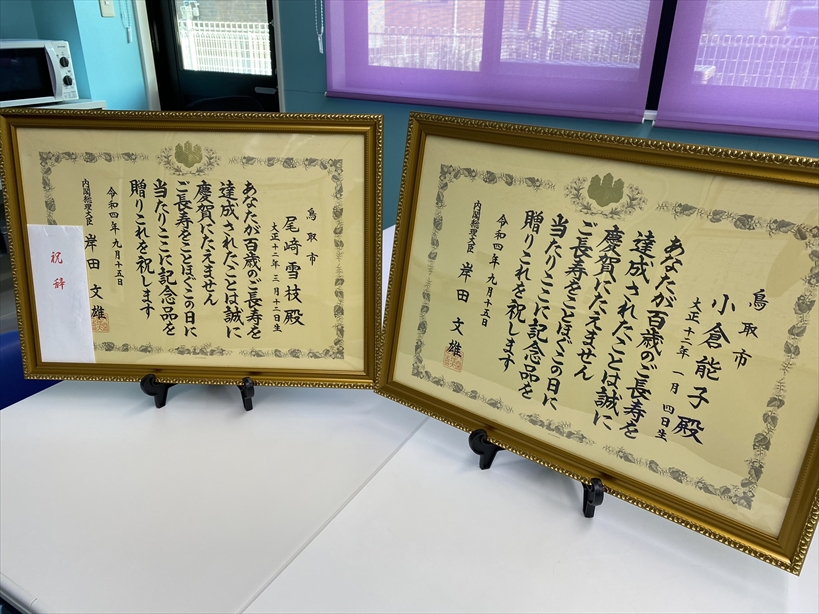 鳥取市
尾﨑雪枝殿
大正十二年三月十二日生
あなたが百歳のご長寿を
達成されたことは誠に
慶賀にたえません
ご長寿をことほぐこの日に
当たりここに記念品を
贈りこれを祝します
令和四年九月十五日
内閣総理大臣 岸田文雄
祝辞
鳥取市
小倉能子殿
大正十二年一月四日生
あなたが百歳のご長寿を
達成されたことは誠に
慶賀にたえません
ご長寿をことほぐこの日に
当たりここに記念品を
贈りこれを祝します
令和四年九月十五日
内閣総理大臣 岸田文雄